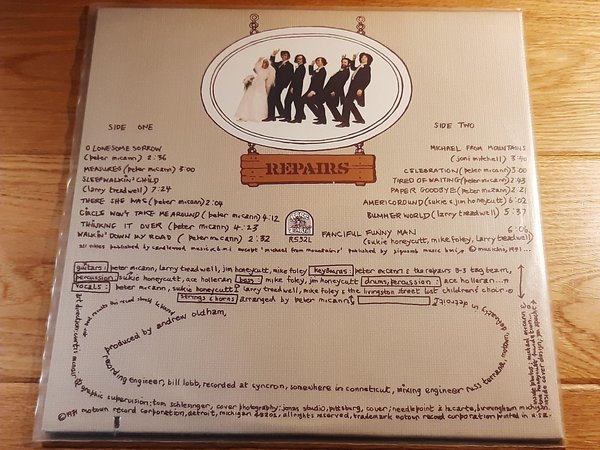 REPAIRS
SIDE ONE
O LONESOME SORROW
(peter mccann) 2:36
MEASURES (peter mccann) 3:00
SLEEPWALKIN' CHILD
(larry treadwell) 7:24
THERE SHE WAS (peter mccann) 2:04
CIRCLE WON'T TAKE ME AROUND (peter mccann) 4:12
THINKING IT OVER (peter mccann) 4:23
WALKIN' DOWN MY ROAD (peter mccann) 2:32
SIDE TWO
MICHAEL FROM MOUNTAINS
(joni mitchell) 3:40
CELEBRATION (peter mccann) 3:00
TIRED OF WAITING (peter mccann)
PAPER GOODBYE (peter mccann) 2:21
AMERICGROUND (sukie & jim honeycutt) 6:02
BUMMER WORLD (larry treadwell) 5:37
FANCIFUL FUNNY MAN 6:06
(sukie honeycutt, mike foley, larry treadwell)
R532L
all titles published by candlewood music, b.m.i. except 'michael from mountains' published by siquomb music b.m.i.
guitars: peter mccann, larry treadwell, jim honeycutt, mike foley keyboards: peter mccann & the repairs B-3 tag team,
percussion: sukie honeycutt, ace holleran bass: mike foley, jim honeycutt drums, percussion: ace holleran
vocals: peter mccann, sukie honeycutt, larry treadwell, mike foley & the livingston street lost childrens' choir
strings & horns arranged by peter mccann
produced by andrew oldham,
recording engineer, bill lobb, recorded at syncron, somewhere in connecticut, mixing engineer russ terrana, motown
art direction: curtis mcnair graphic supervision: tom schlesinger, cover photography: jonas studio, pittsburg, cover: needlepoint à la carte, birmingham michigan.
© 1971 motown record corporation, detroit, michigan 48201, all rights reserved, trademark motown record corporation printed in u.s.a.